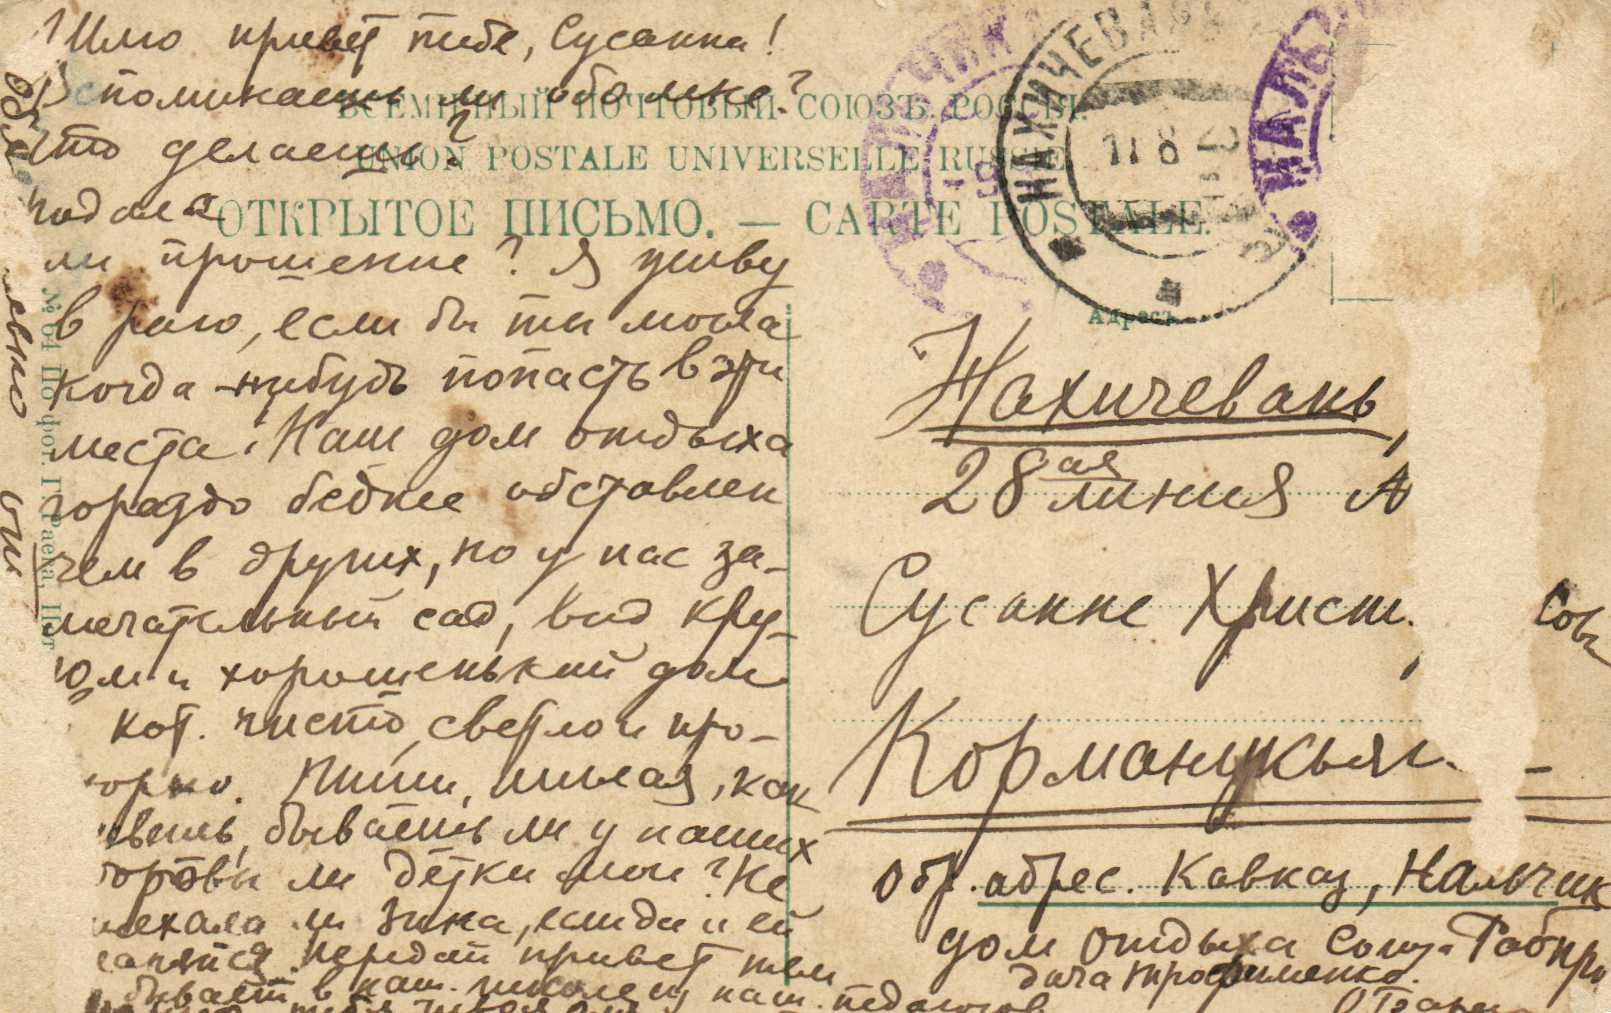 Шлю привет тебе, Сусанна!
Вспоминаешь ли обо мне?
Что делаешь?
подала
ли прошение? Я живу
в раю, если бы ты могла
когда-нибудь попасть в эти
места! Наш дом отдыха
гораздо беднее обставлен
чем в других, но у нас за-
мечательный сад, вид кру-
гом и хорошенький дом
кот. чисто, светло и про-
орно. Пиши, милая, как
ивешь, бываешь ли у наших
доровы ли детки мои? Не
риехала ли Зина, если да и ей
передай привет
бывает в наш. школе из наш. педагогов
ВСЕМІРНЫЙ ПОЧТОВЫЙ СОЮЗЪ. РОССІЯ.
UNION POSTALE UNIVERSELLE RUSSIE.
ОТКРЫТОЕ ПИСЬМО. — CARTE POSTALE.
НАХИЧЕВАНЬ
11 8
НАЛЬЧИК
Адресъ
Нахичевань,
28ая линия
Сусанне Христ.
Корманукьян
Обр. адрес. Кавказ, Нальчик
дом отдыха Союз. Рабпро
дача Трофименко.
№ 61 По фот. Г. Раева, Пят